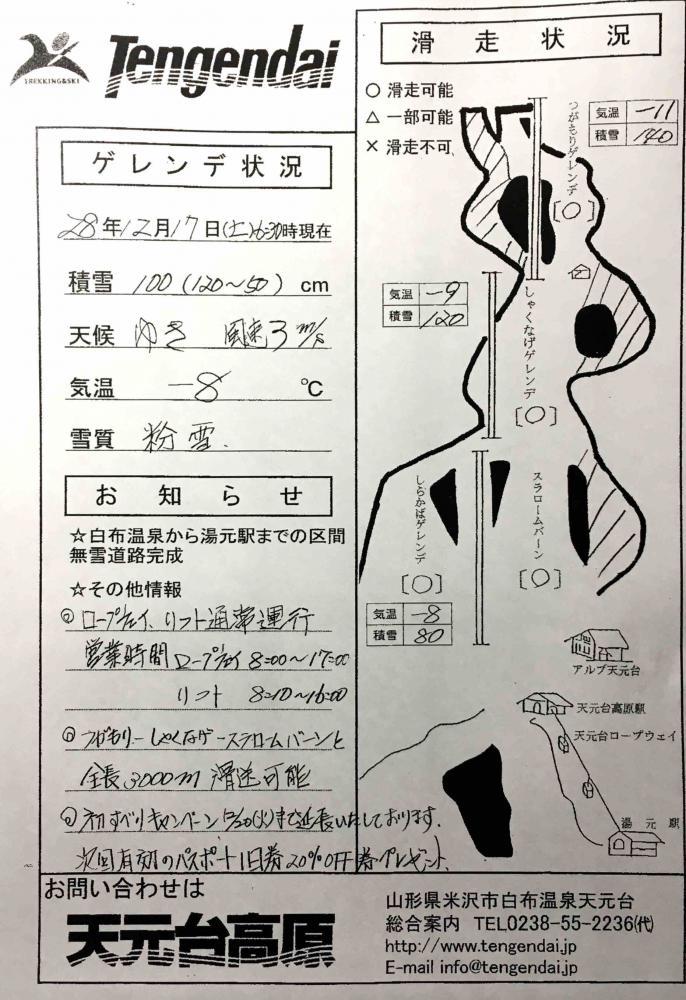 TREKKING&SKI
Tengendai
ゲレンデ状況
28年12月17日(土)6:30時現在
積雪 100(120～50) cm
天候 ゆき 風速3m/s
気温 -8 ℃
雪質 粉雪.
お知らせ
☆白布温泉から湯元駅までの区間
無雪道路完成
☆その他情報
◎ロープウェイ、リフト通常運行
営業時間 ロープウェイ 8:00～17:00
リフト 8:10～16:00
◎つがもりーしゃくなげースラロームバーンと
全長3000m 滑走可能
◎初すべりキャンペーン 12/20(火)まで延長いたしております.
次回有効のパスポート1日券20%OFF券プレゼント.
滑走状況
○ 滑走可能
△ 一部可能
× 滑走不可
つがもりゲレンデ
[○]
気温 -11
積雪 140
気温 -9
積雪 120
しゃくなげゲレンデ
[○]
しらかばゲレンデ
[○]
スラロームバーン
[○]
気温 -8
積雪 80
アルブ天元台
天元台高原駅
天元台ロープウェイ
湯元駅
お問い合わせは
天元台高原
山形県米沢市白布温泉天元台
総合案内 TEL0238-55-2236(代)
http://www.tengendai.jp
E-mail info@tengendai.jp